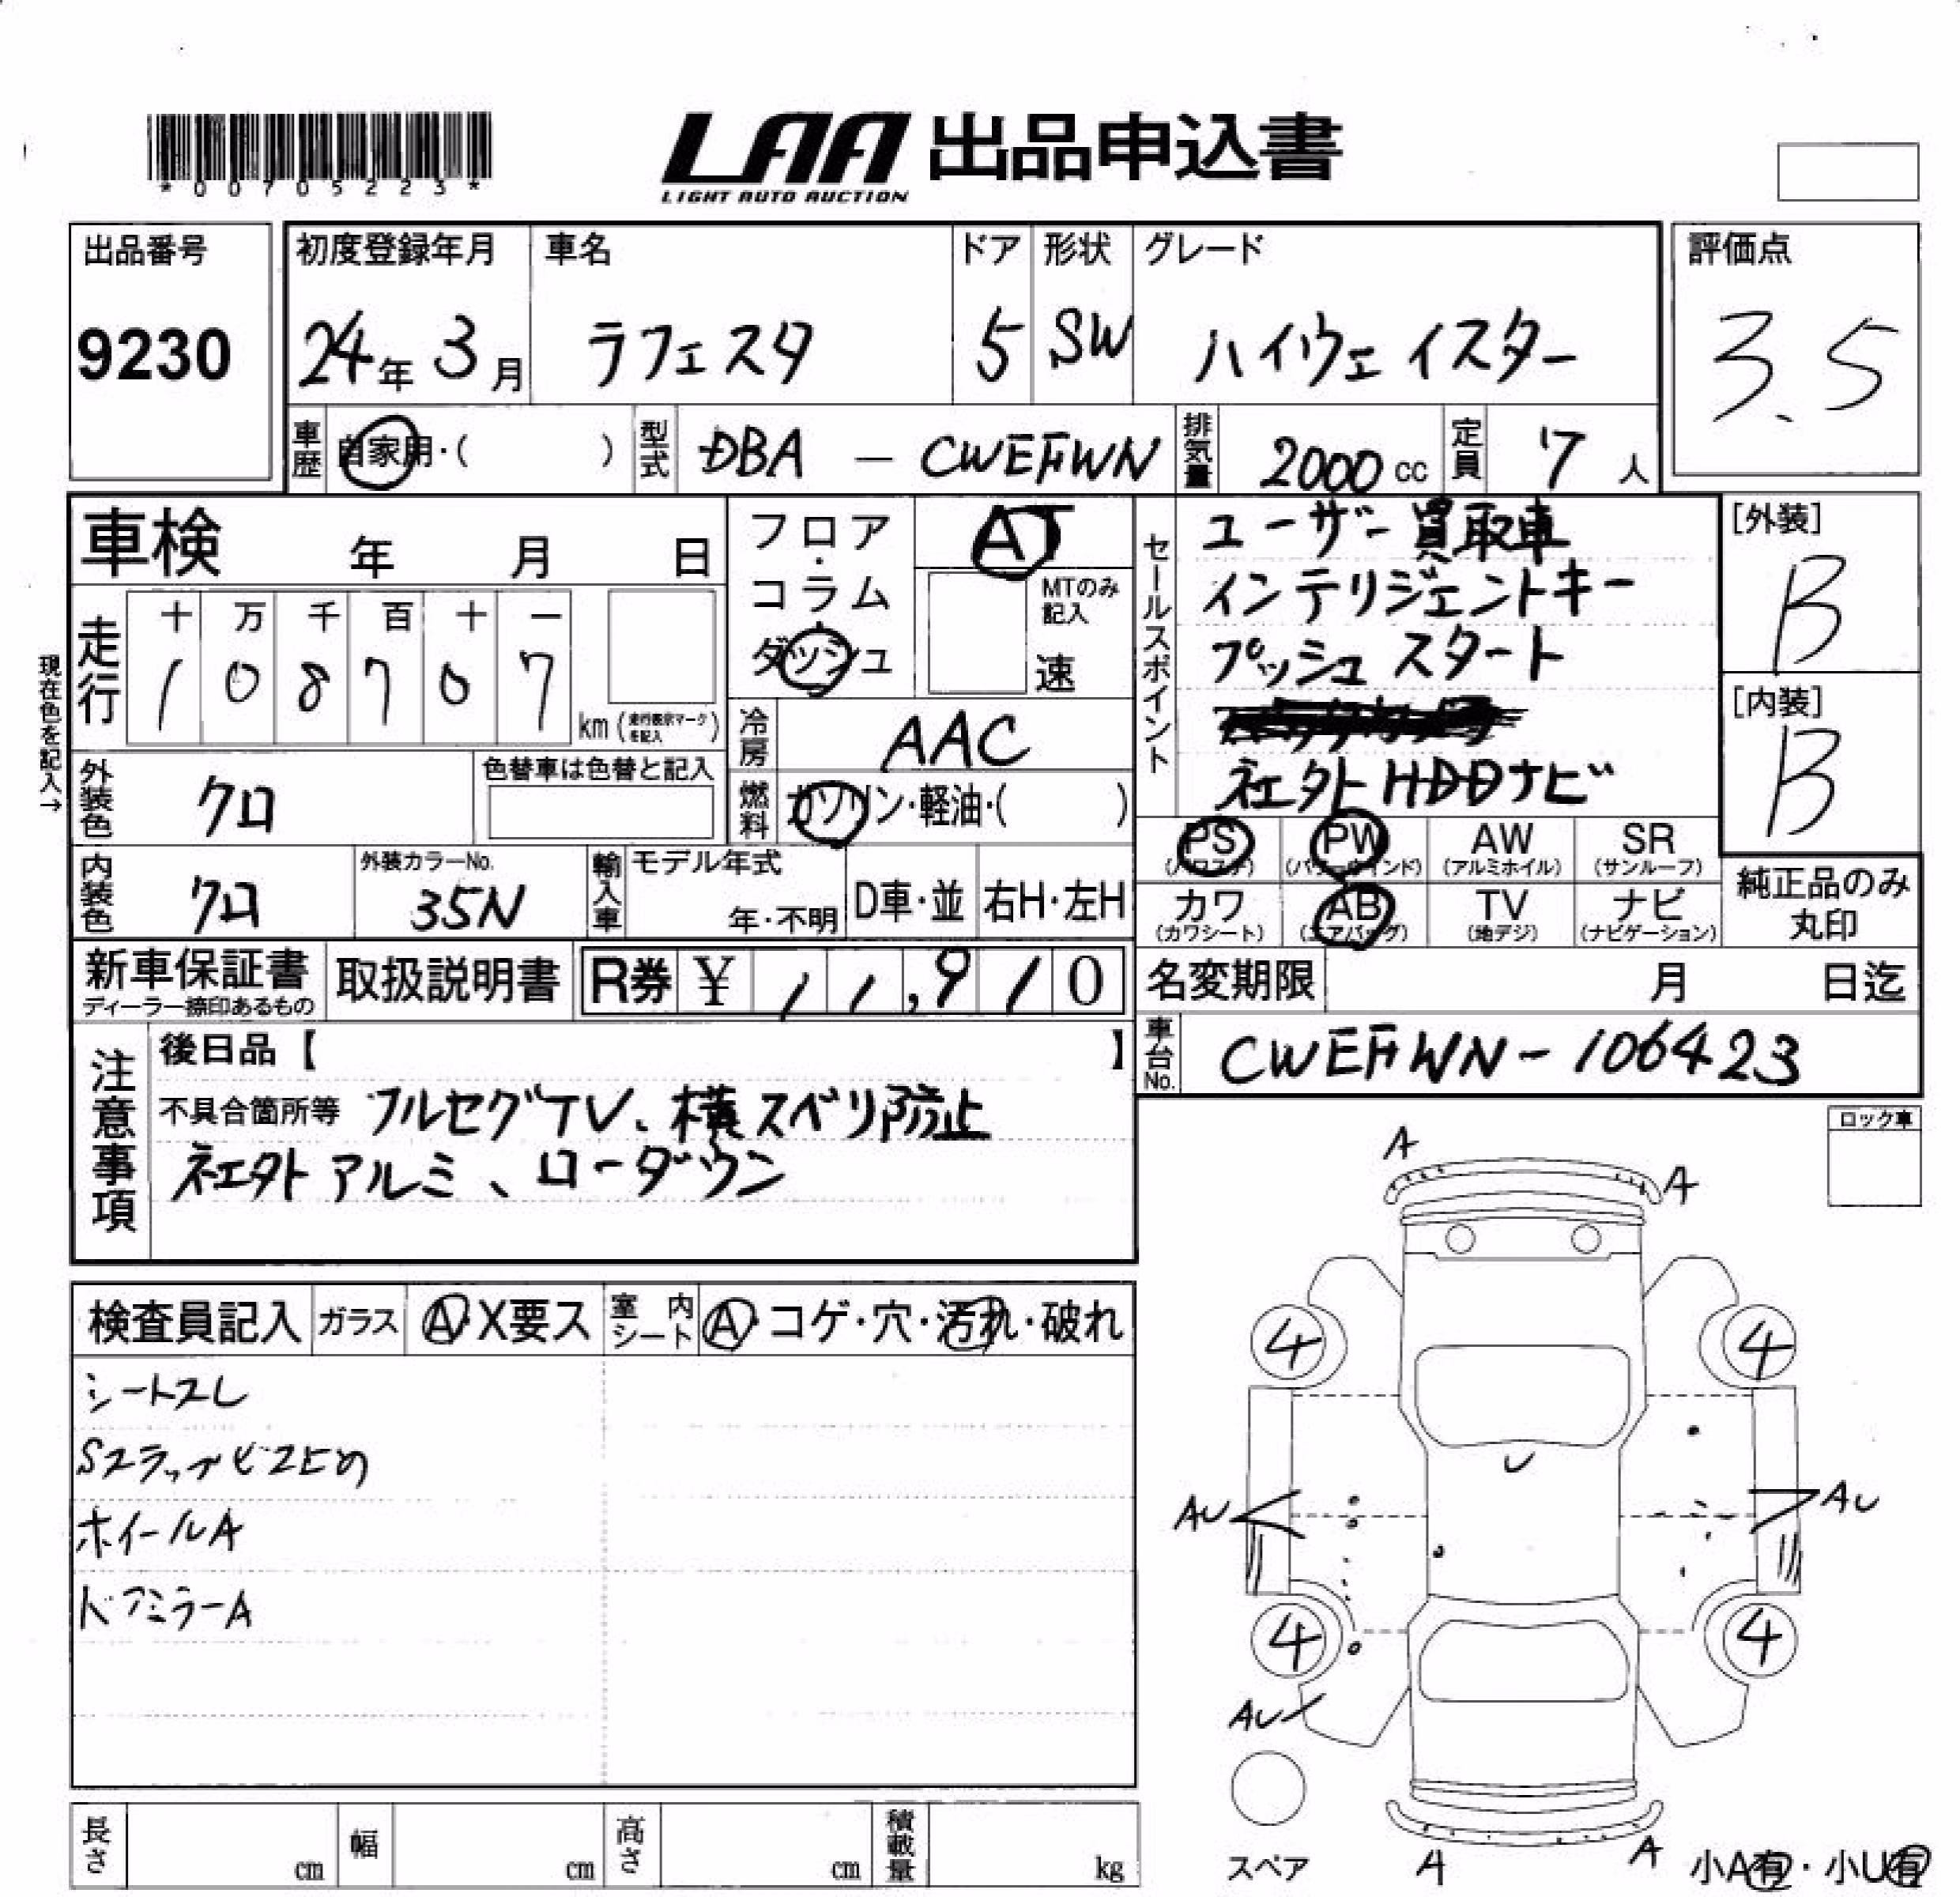 *00705223*
LAA 出品申込書
LIGHT AUTO AUCTION
出品番号
9230
初度登録年月
24年 3月
車名
ラフェスタ
ドア
5
形状
SW
グレード
ハイウェイスター
評価点
3.5
車歴
自家用・( )
型式
DBA - CWEFWN
排気量
2000 cc
定員
7 人
車検 年 月 日
フロア・コラム・ダッシュ
AT
MTのみ記入
速
セールスポイント
ユーザー買取車
インテリジェントキー
プッシュスタート
社外HDDナビ
[外装]
B
[内装]
B
現在色を記入→
走行
十 万 千 百 十 一
1 0 8 7 0 7
km (走行表示マークを記入)
冷房
AAC
燃料
ガソリン・軽油・( )
外装色
クロ
色替車は色替と記入
内装色
クロ
外装カラーNo.
35N
輸入車
モデル年式
年・不明
D車・並
右H・左H
PS (パワステ)
PW (パワーウインド)
AW (アルミホイル)
SR (サンルーフ)
カワ (カワシート)
AB (エアバッグ)
TV (地デジ)
ナビ (ナビゲーション)
純正品のみ丸印
新車保証書
ディーラー捺印あるもの
取扱説明書
R券 ¥ 11,910
名変期限 月 日迄
車台No.
CWEFWN-106423
注意事項
後日品【 】
不具合箇所等 フルセグTV、横スベリ防止
社外アルミ、ローダウン
ロック車
検査員記入
ガラス
A・X要ス
室内シート
A・コゲ・穴・汚れ・破れ
シートスレ
Sステップビス止め
ホイールA
ドアミラーA
A
A
4
4
U
AU
AU
4
4
AU
スペア
A
A
小A有・小U有
長さ cm
幅 cm
高さ cm
積載量 kg